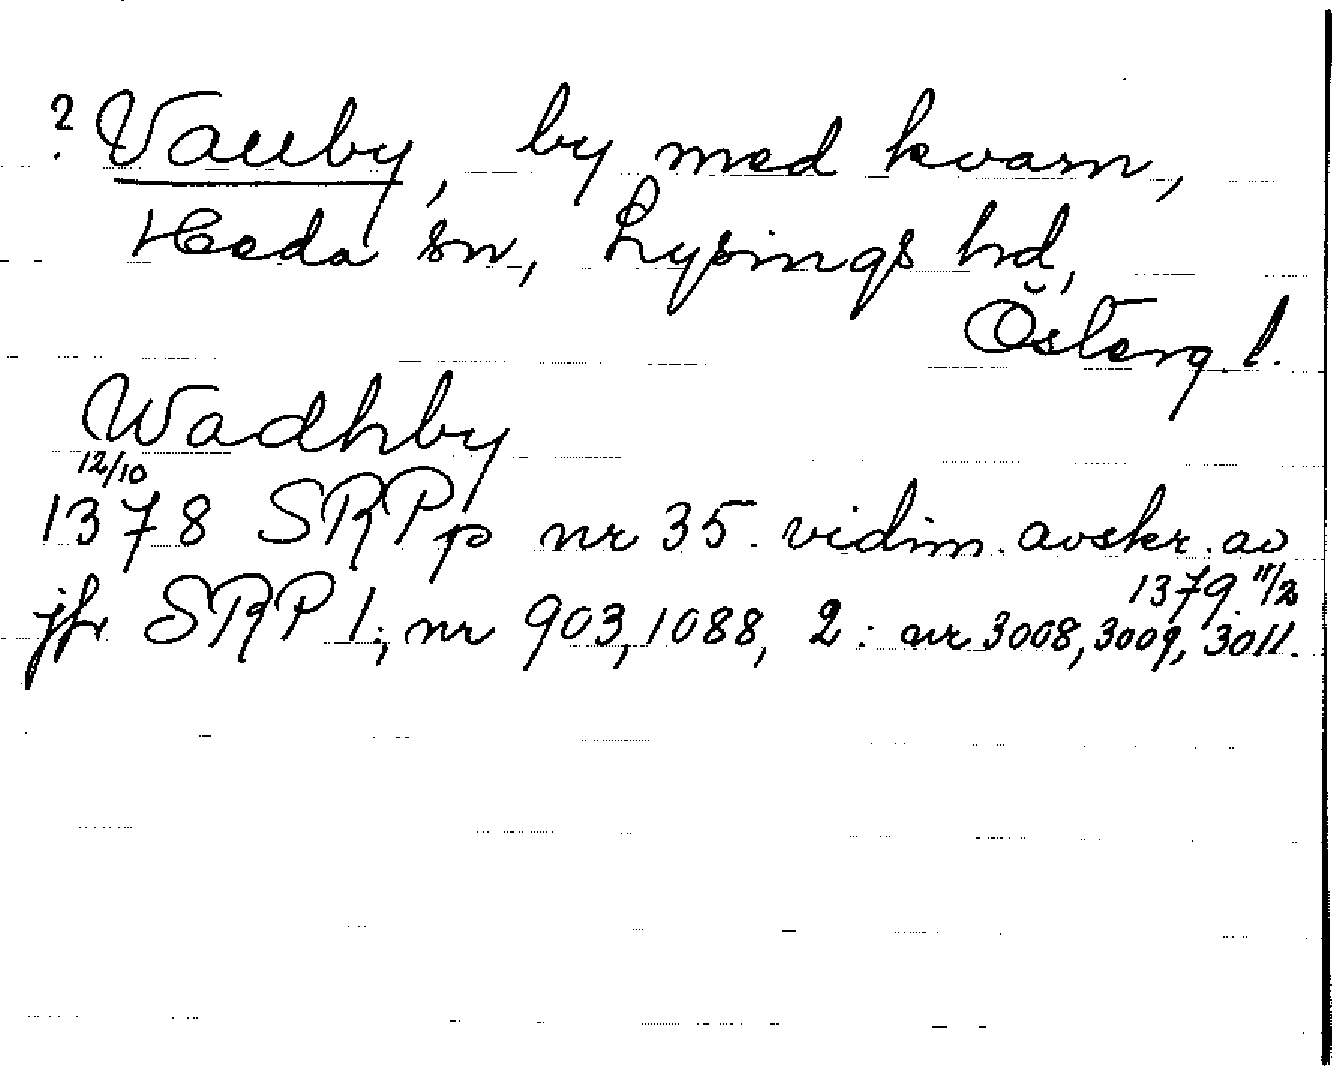 ? Vauby, by med kvarn,
Heda sn, Lysings hd,
Österg. l.
Wadhby
12/10
1378 SRPp nr 35. vidim. avskr. av
1379 11/2
jfr SRP 1; nr 903, 1088, 2: nr 3008, 3009, 3011.